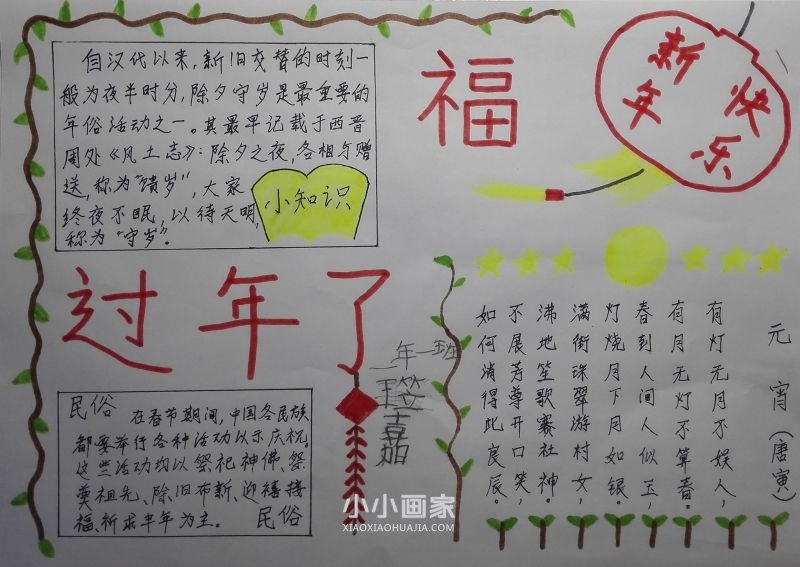 自汉代以来,新旧交替的时刻一
般为夜半时分,除夕守岁是最重要的
年俗活动之一。其最早记载于西晋
周处《风土志》:除夕之夜,各相与赠
送,称为“馈岁”,大家
终夜不眠,以待天明,
称为“守岁”。
小知识
福
新年
快乐
过年了
一年一班
民俗
在春节期间,中国各民族
都要举行各种活动以示庆祝。
这些活动均以祭祀神佛、祭
奠祖先、除旧布新、迎禧接
福、祈求丰年为主。
民俗
元宵(唐寅)
有灯无月不娱人,
有月无灯不算春。
春到人间人似玉,
灯烧月下月如银。
满街珠翠游村女,
沸地笙歌赛社神。
不展芳尊开口笑,
如何消得此良辰。
小小画家
XIAOXIAOHUAJIA.COM